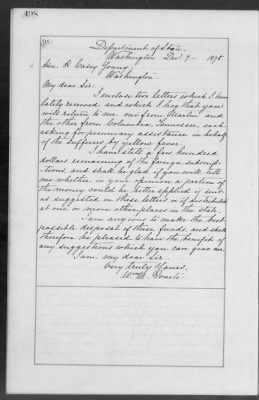 498
Department of State,
Washington Dec 7 - 1878.
Hon. H. Casey Young,
Washington.
My dear Sir:
I enclose two letters which I have
lately received and which I beg that you
will return to me, one from Martin and
the other from Columbia, Tennessee, each
asking for pecuniary assistance in behalf
of the sufferers by yellow fever.
I have still a few hundred
dollars remaining of the foreign subscrip-
tions, and shall be glad if you will tell
me whether in your opinion a portion of
the money could be better applied if sent
as suggested in these letters or if distributed
at one or more other places in the state.
I am anxious to make the best
possible disposal of these funds, and shall
therefore be pleased to have the benefit of
any suggestions which you can give me.
I am, my dear Sir,
Very truly Yours,
Wm M. Evarts.